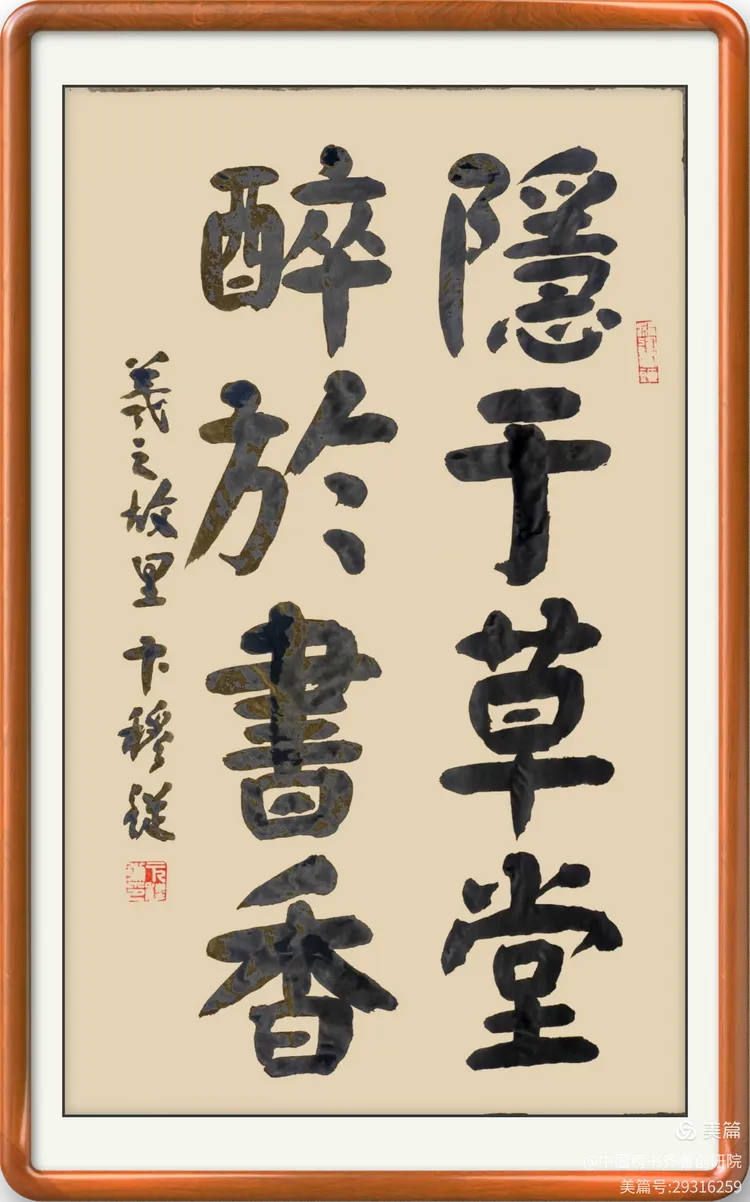 隱于草堂
醉於書香
羲之故里 卞穆從
美篇
@中国榜书齐鲁创研院
美篇号:29316259